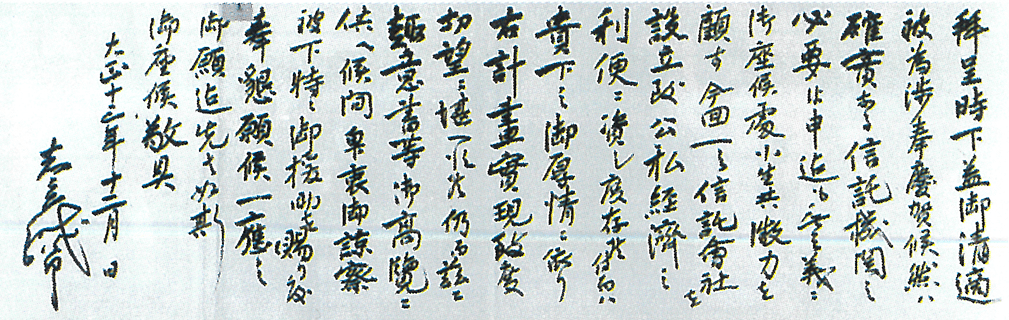 拝呈時下益御清適
被為渉奉慶賀候然ハ
確実なる信託機関之
必要は申迄も無之義ニ
御座候處小生共微力を
顧す今回一之信託会社を
設立致公私経済之
利便ニ資し度存候
貴下之御厚情ニ依り
右計畫實現致度
切望ニ堪へ
趣意書等御高覧ニ
供へ候間卑衷御諒察
被下特ニ御援助を賜り度
奉懇願候一應之
御願迄先は如斯
御座候敬具
大正十三年十二月 日